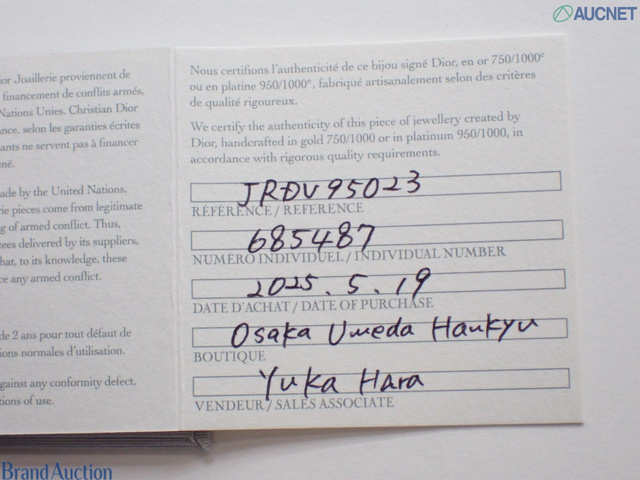 AUCNET
ior Joaillerie proviennent de
financement de conflits armés,
Nations Unies. Christian Dior
ance, selon les garanties écrites
ants ne servent pas à financer
mé.
ade by the United Nations,
rie pieces come from legitimate
g of armed conflict. Thus,
tees delivered by its suppliers,
hat, to its knowledge, these
ce any armed conflict.
de 2 ans pour tout défaut de
ions normales d'utilisation.
against any conformity defect,
tions of use.
Nous certifions l'authenticité de ce bijou signé Dior, en or 750/1000e
ou en platine 950/1000e, fabriqué artisanalement selon des critères
de qualité rigoureux.
We certify the authenticity of this piece of jewellery created by
Dior, handcrafted in gold 750/1000 or in platinum 950/1000, in
accordance with rigorous quality requirements.
JRDV95023
RÉFÉRENCE / REFERENCE
685487
NUMÉRO INDIVIDUEL / INDIVIDUAL NUMBER
2025.5.19
DATE D'ACHAT / DATE OF PURCHASE
Osaka Umeda Hankyu
BOUTIQUE
Yuka Hara
VENDEUR / SALES ASSOCIATE
Brand Auction